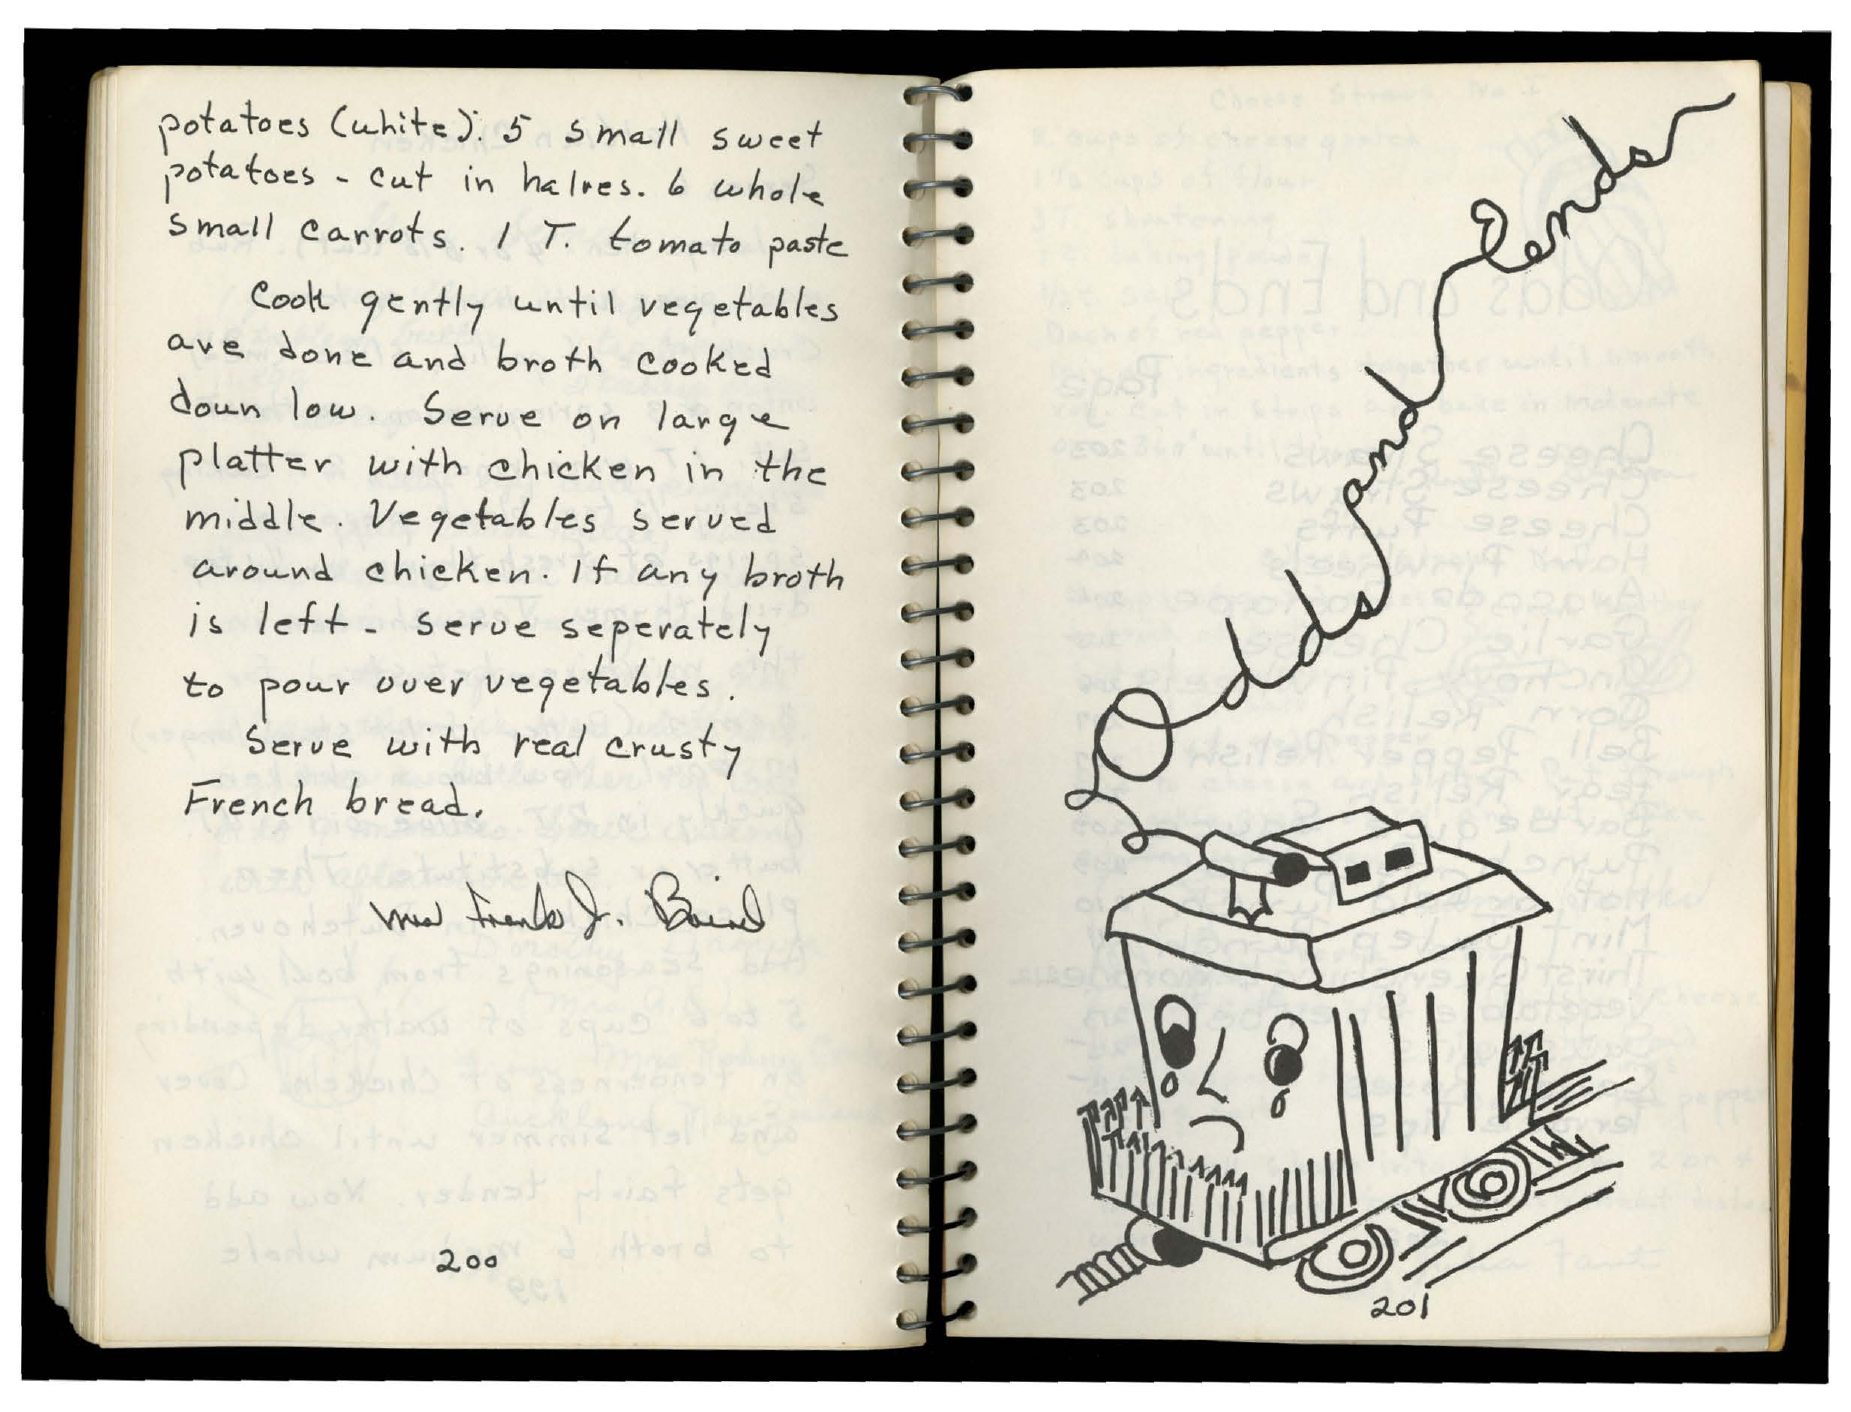 potatoes (white). 5 small sweet
potatoes - cut in halves. 6 whole
small carrots. 1 T. tomato paste
Cook gently until vegetables
are done and broth cooked
down low. Serve on large
platter with chicken in the
middle. Vegetables served
around chicken. If any broth
is left - serve seperately
to pour over vegetables.
Serve with real crusty
French bread.
Mrs Frank J. Baird
200
Odds and Ends
201